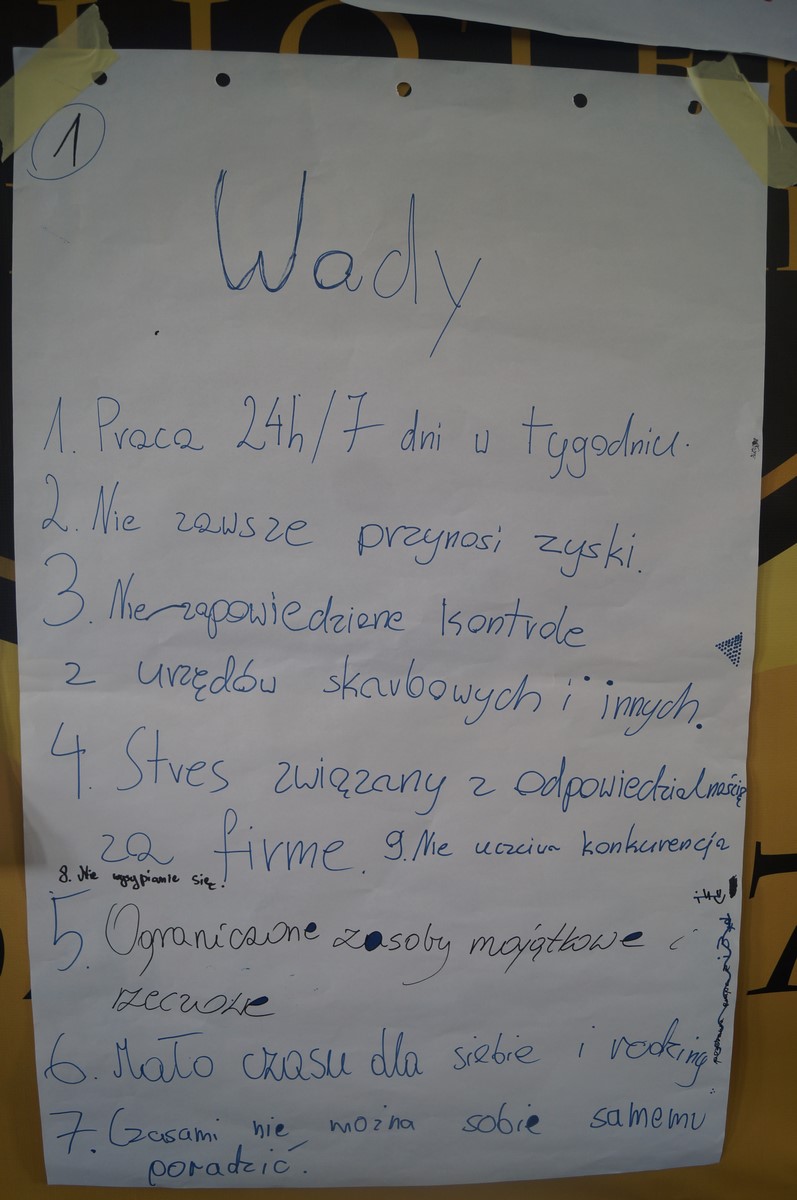 1
Wady
1. Praca 24h/7 dni w tygodniu.
2. Nie zawsze przynosi zyski.
3. Nie zapowiedziane kontrole
z urzędów skarbowych i innych.
4. Stres związany z odpowiedzialnością
za firme. 9. Nie uczciwa konkurencja
8. Nie wysypianie się.
5. Ograniczone zasoby majątkowe i
rzeczowe
6. Mało czasu dla siebie i rodziny
7. Czasami nie można sobie samemu
poradzić.